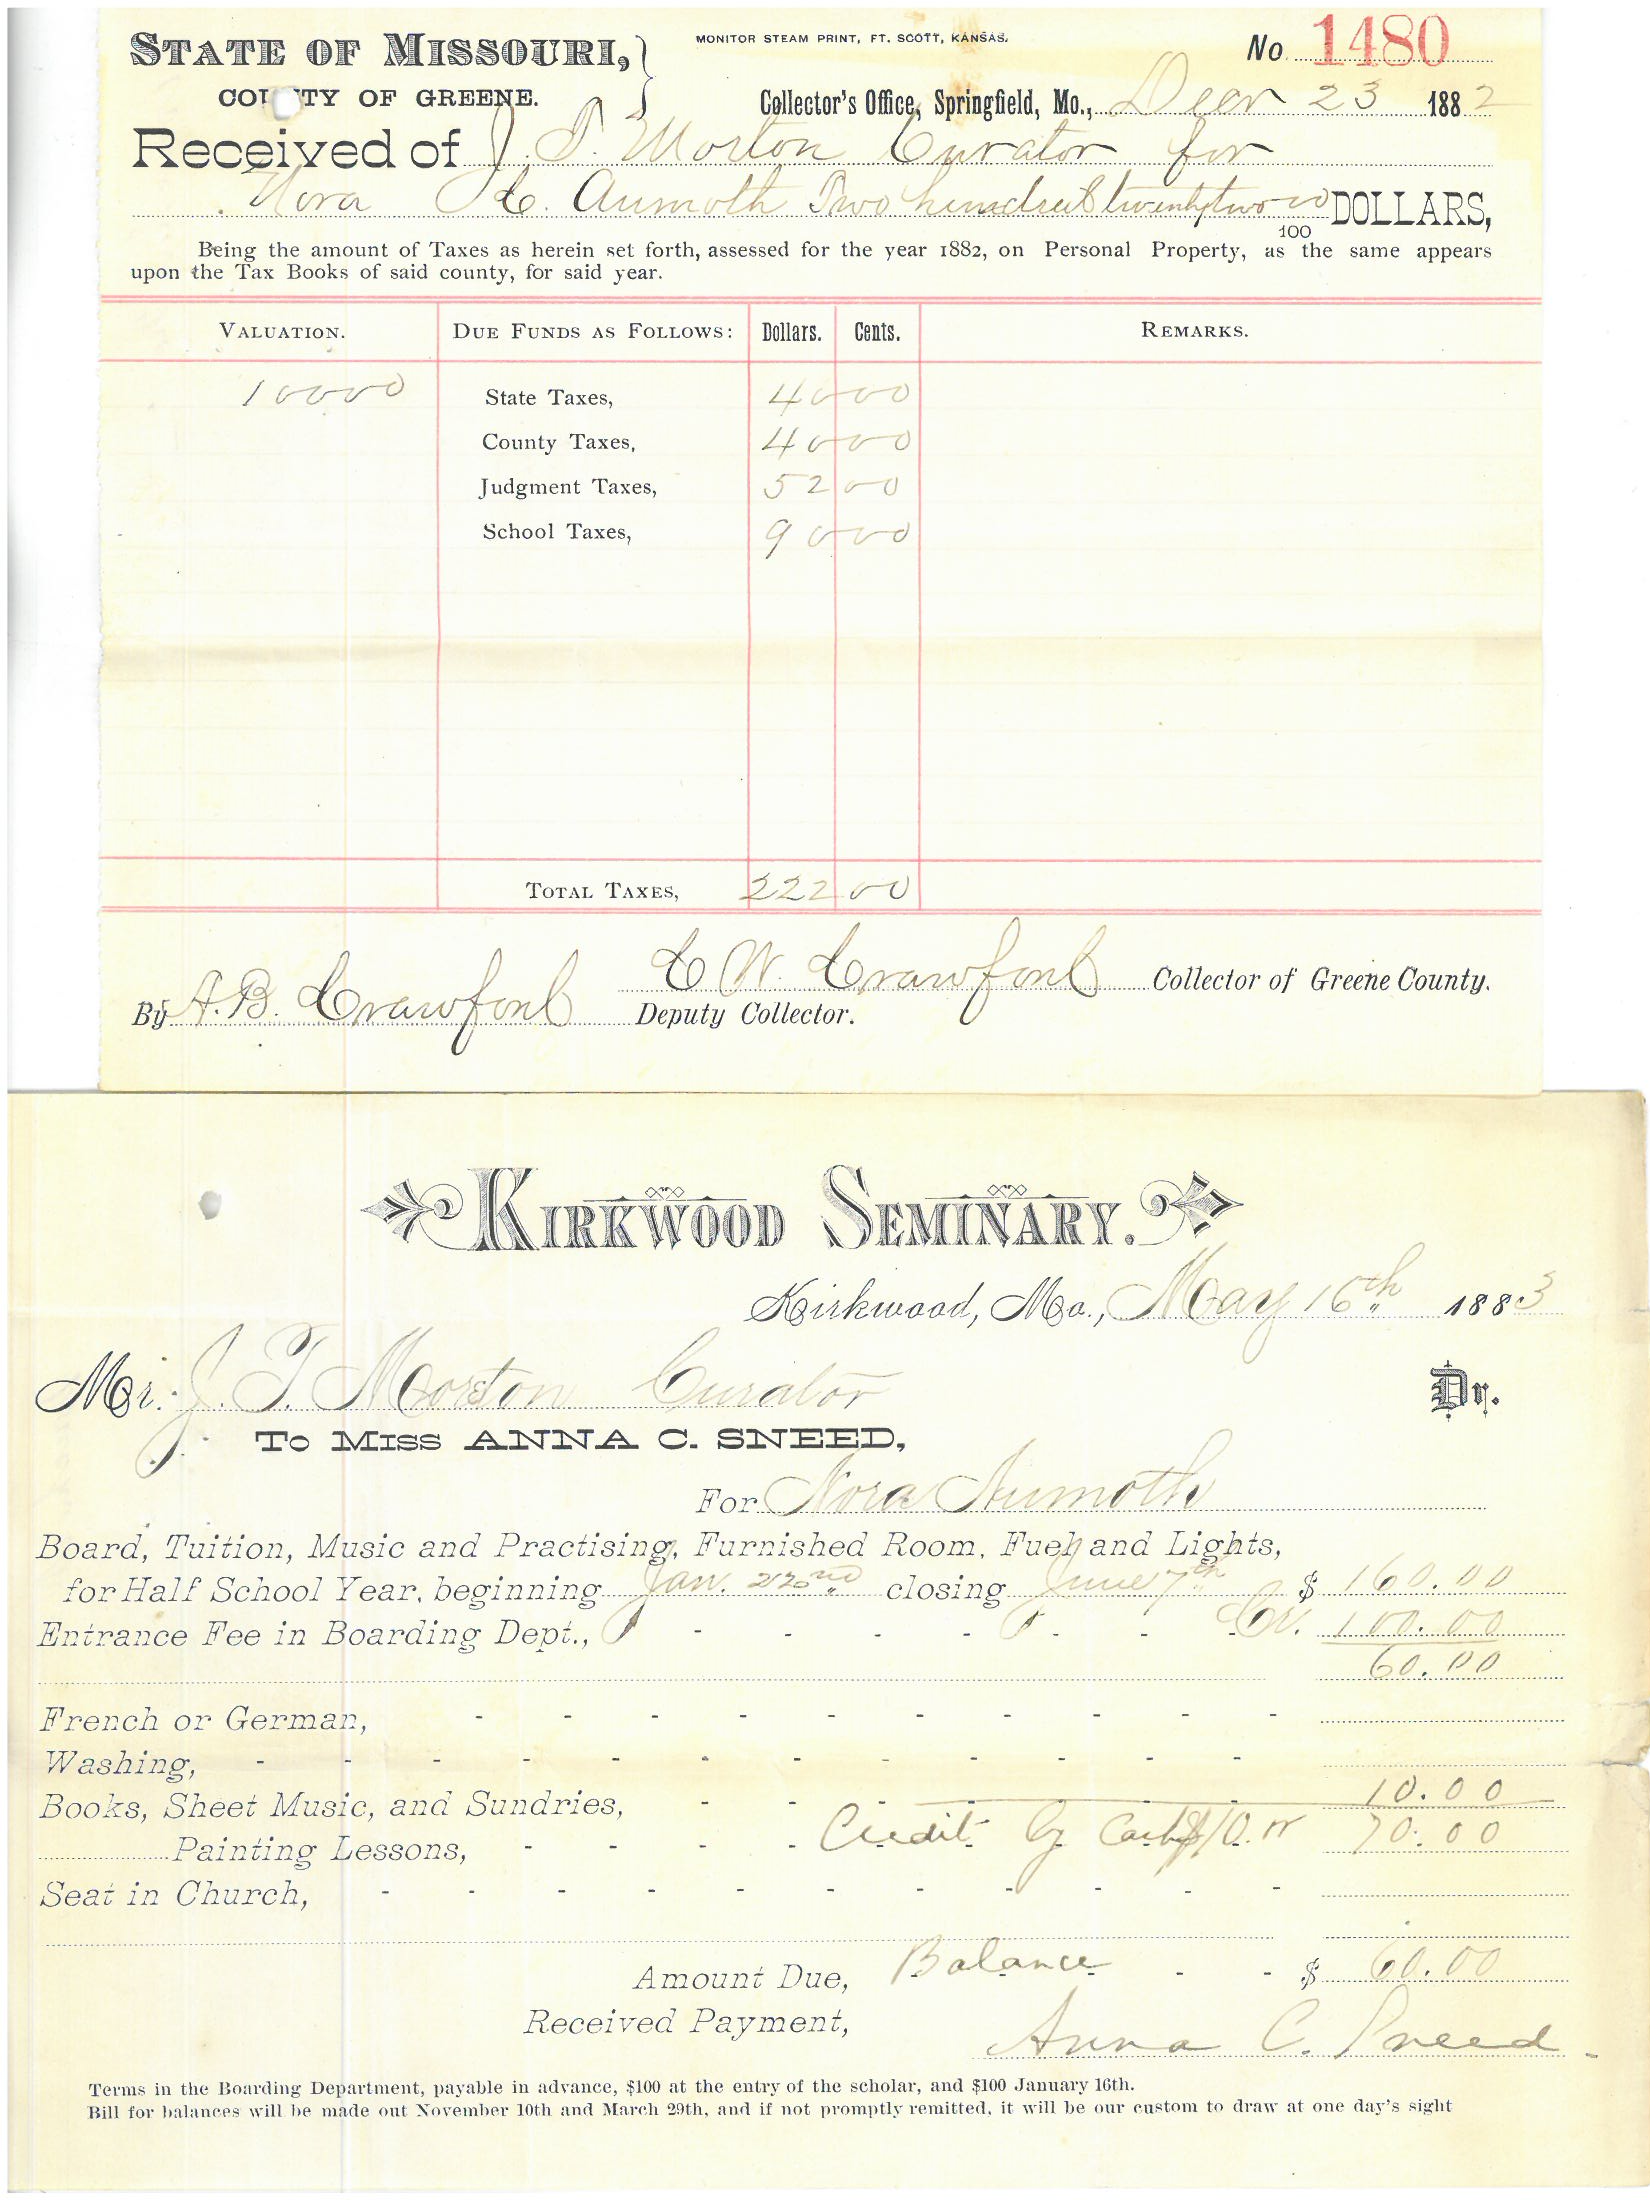 STATE OF MISSOURI, MONITOR STEAM PRINT, FT. SCOTT, KANSAS. No. 1480
COUNTY OF GREENE. Collector's Office, Springfield, Mo., Decr 23 1882
Received of J. T. Morton Curator for
Nora C. Aumoth Two hundred twenty two 00/100 DOLLARS,
Being the amount of Taxes as herein set forth, assessed for the year 1882, on Personal Property, as the same appears
upon the Tax Books of said county, for said year.
VALUATION. DUE FUNDS AS FOLLOWS: Dollars. Cents. REMARKS.
10000 State Taxes, 40 00
County Taxes, 40 00
Judgment Taxes, 52 00
School Taxes, 90 00
TOTAL TAXES, 222 00
C W. Crawford Collector of Greene County.
By A. B. Crawford Deputy Collector.
KIRKWOOD SEMINARY.
Kirkwood, Mo., May 16th 1883
Mr. J. T. Morton Curator Dr.
TO MISS ANNA C. SNEED,
For Nora Aumoth
Board, Tuition, Music and Practising, Furnished Room, Fuel and Lights,
for Half School Year, beginning Jan. 22nd closing June 7th $ 160.00
Entrance Fee in Boarding Dept., - - - - - - Cr. 100.00
60.00
French or German, - - - - - - - - - -
Washing, - - - - - - - - - - - -
Books, Sheet Music, and Sundries, - - - - - - - 10.00
Painting Lessons, - - - - Credit by Cash $10.00 70.00
Seat in Church, - - - - - - - - - - -
Amount Due, Balance - - $ 60.00
Received Payment,
Anna C. Sneed.
Terms in the Boarding Department, payable in advance, $100 at the entry of the scholar, and $100 January 16th.
Bill for balances will be made out November 10th and March 29th, and if not promptly remitted, it will be our custom to draw at one day's sight